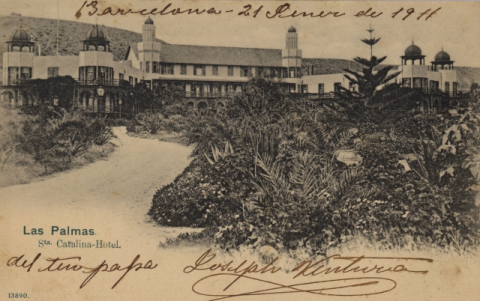 Barcelona - 21 Enero de 1911
Las Palmas.
Sta. Catalina-Hotel.
del
papá
Joseph Ventura
13890.